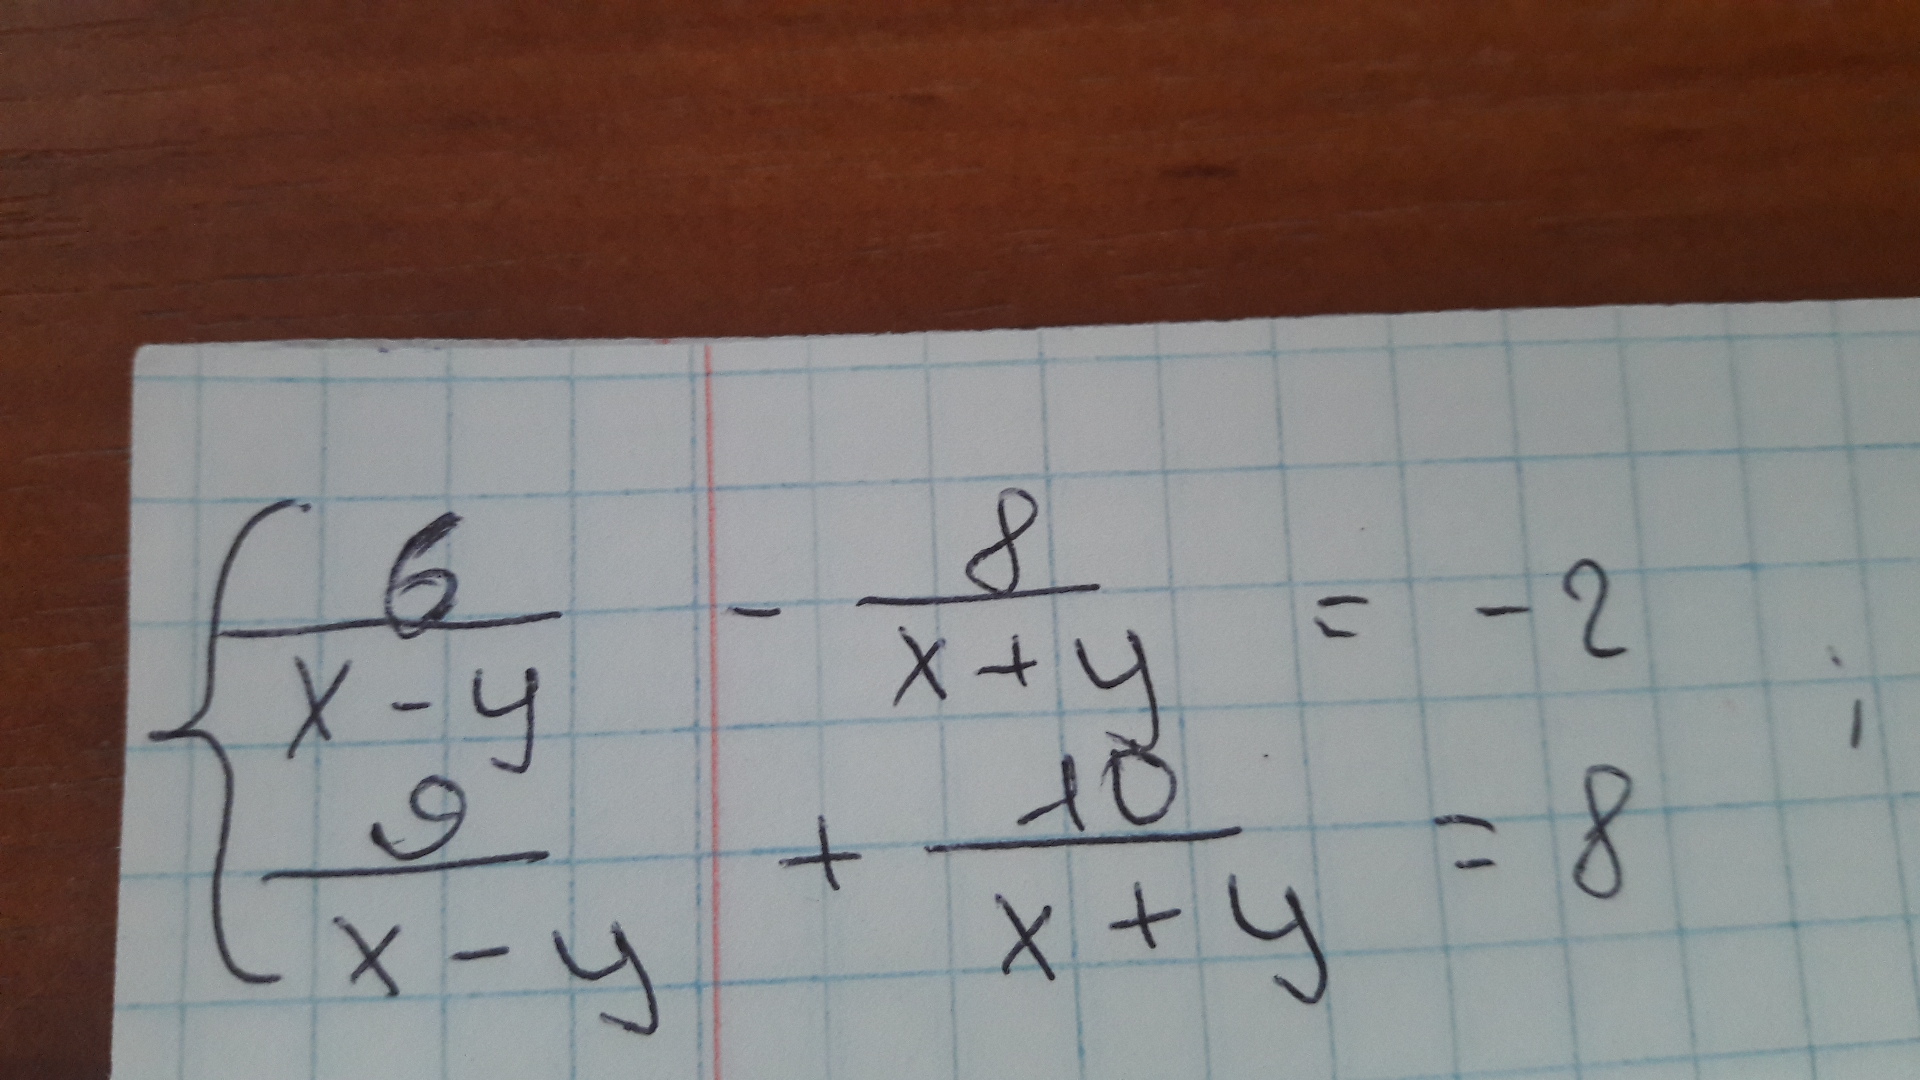 { 6/(x-y) - 8/(x+y) = -2 ;
9/(x-y) + 10/(x+y) = 8